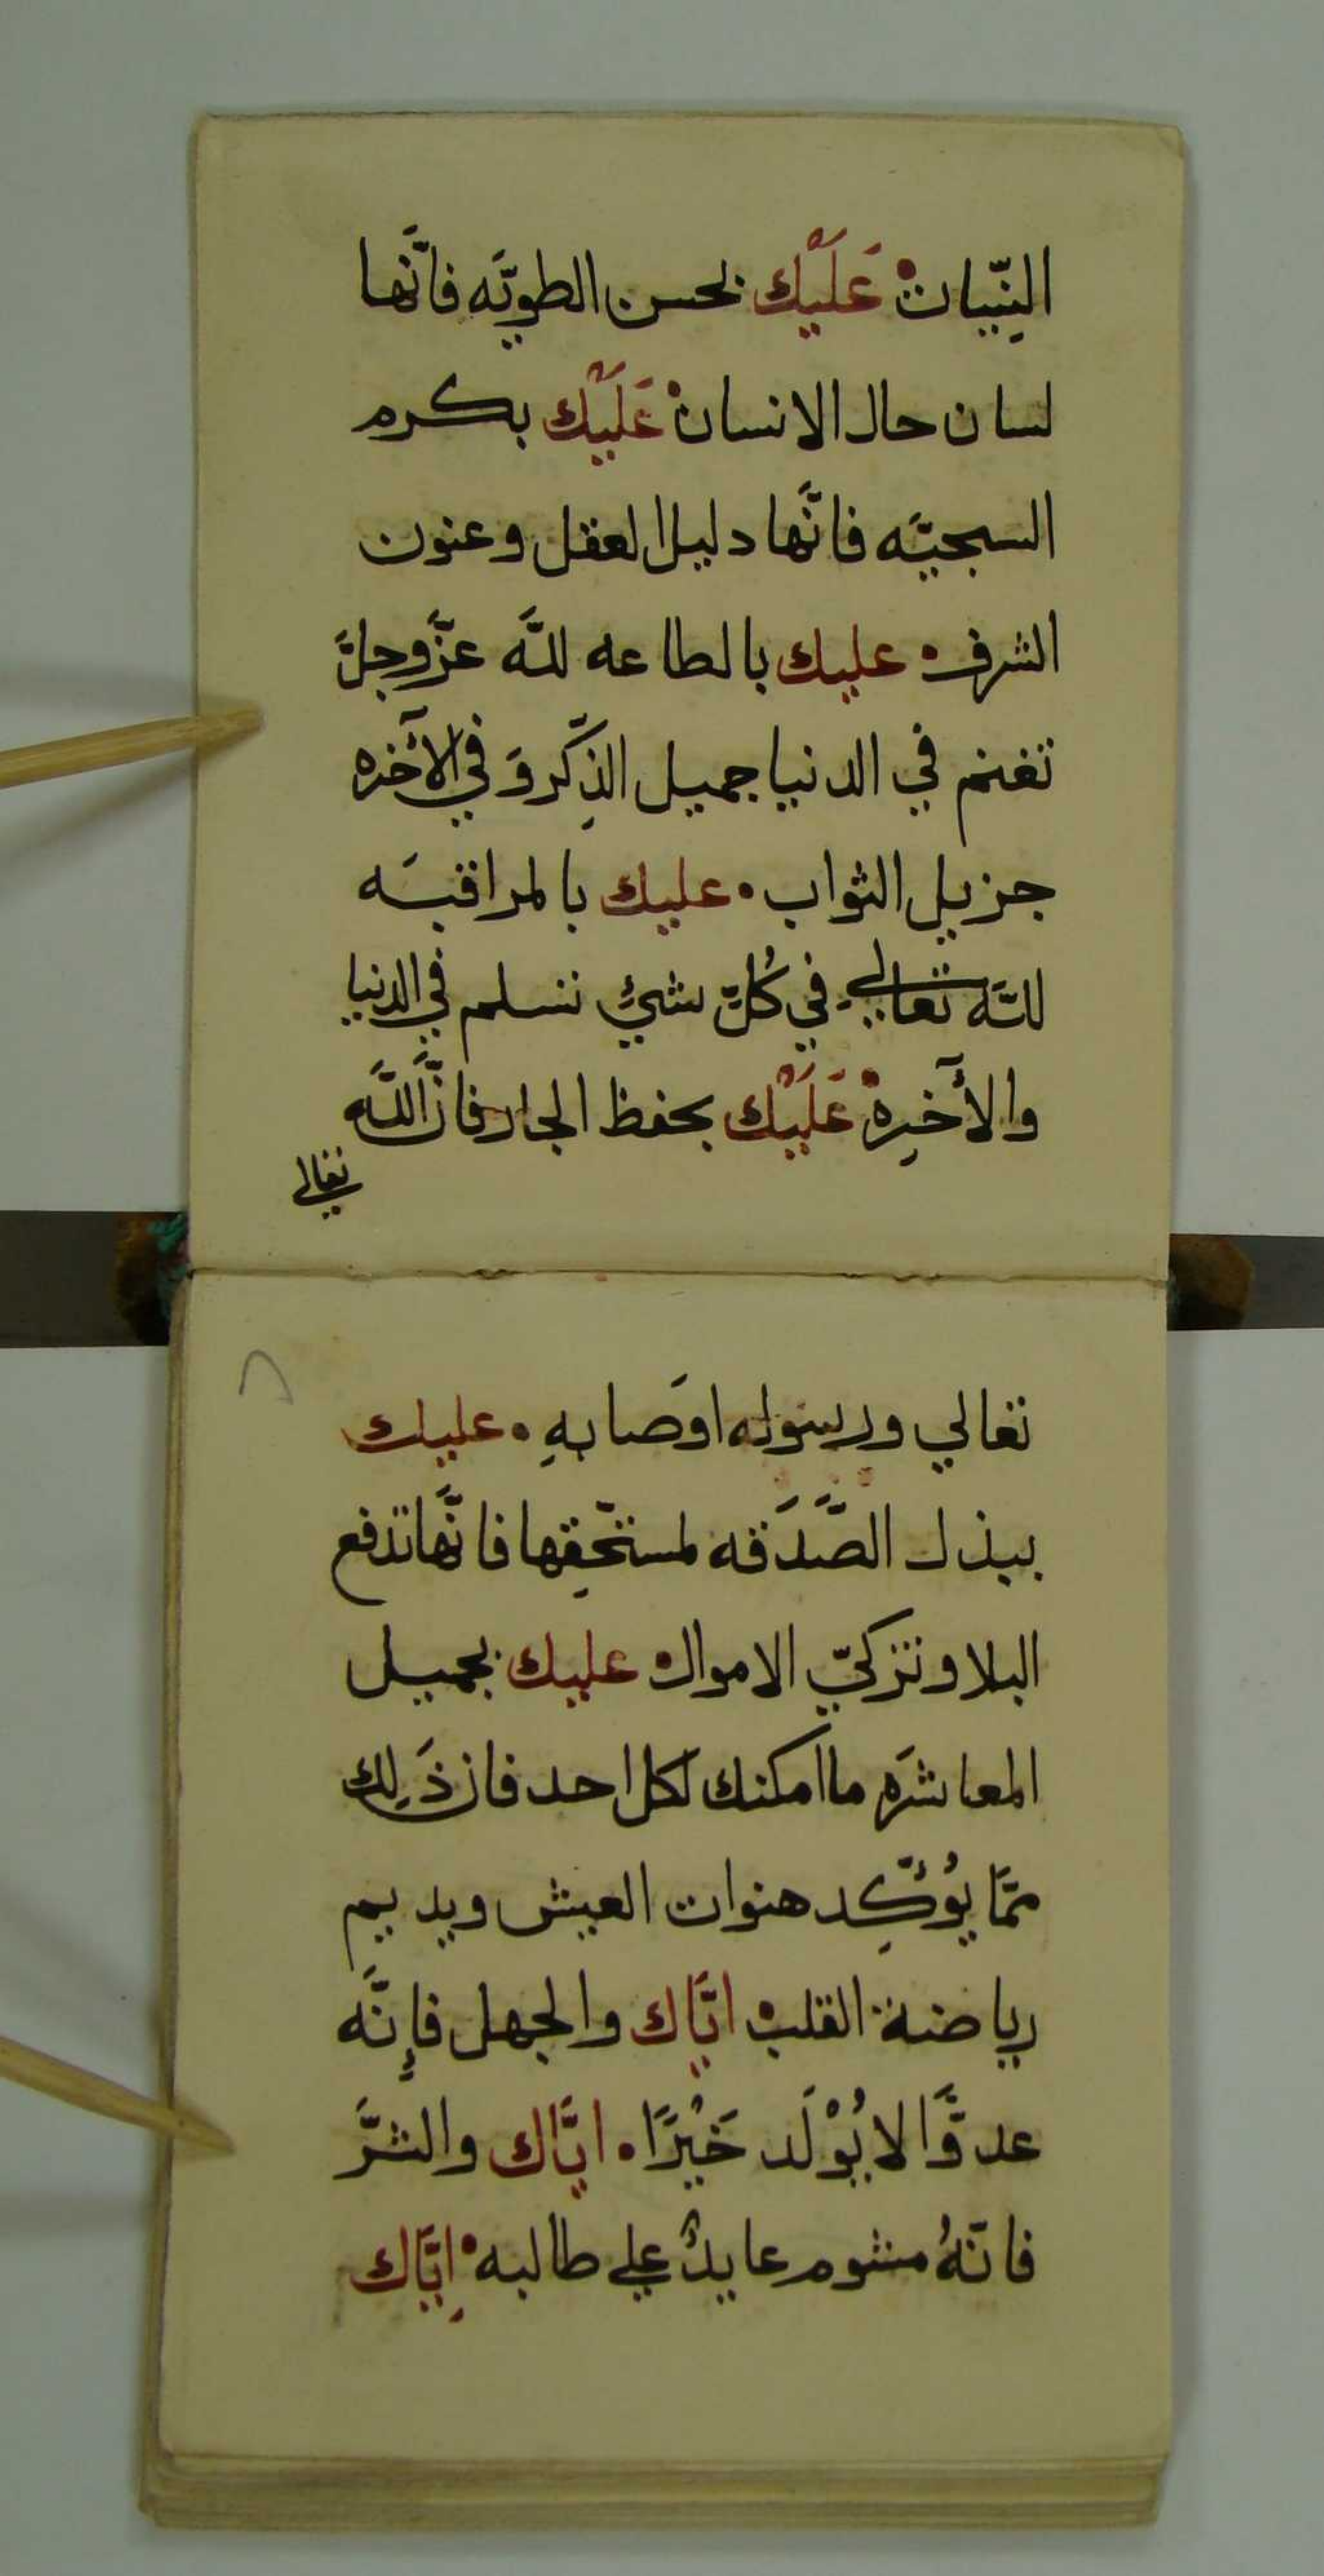 النِّيات • عَلَيْك بحسن الطويَّه فانَّها
لسان حال الانسان • عَلَيْك بكرم
السجيَّه فانَّها دليل العقل وعنون
الشرف • عليك بالطاعه للَّه عزَّوجلَّ
تغنم في الدنيا جميل الذِّكر وَفي الآخره
جزيل الثواب • عليك بالمراقبَه
للَّه تعالي في كُلّ شيءٍ تسلم في الدنيا
والآخِرة • عَلَيْك بحفظ الجار فانَّ اللَّه
تعالى
تعالي ورسوله اوصَا بهِ • عليك
ببذل الصَّدَقه لمستحِقّها فانَّها تدفع
البلا وتزكيّ الاموال • عليك بجميل
المعاشَره ما امكنك لكل احد فان ذَلِك
ممَّا يُؤكِّد هنوات العيش ويديم
رياضة القلب • ايَّاك والجهل فإنَّه
عدوًّا لا يُوْلَد خَيْرًا • ايَّاك والشرَّ
فانّهُ مشوم عايدٌ علي طالبه • اِيَّاك